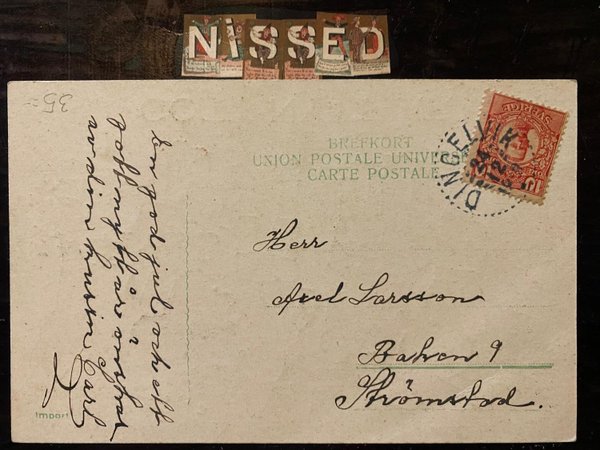 NiSSED
35:-
BREFKORT
UNION POSTALE UNIVERSE
CARTE POSTALE
SVERIGE
DINGELVIK
24
12
En god jul och ett
gott nytt år önskar
av din kusin Carl
Herr
Axel Larsson
Balven 9
Strömstad.
Import